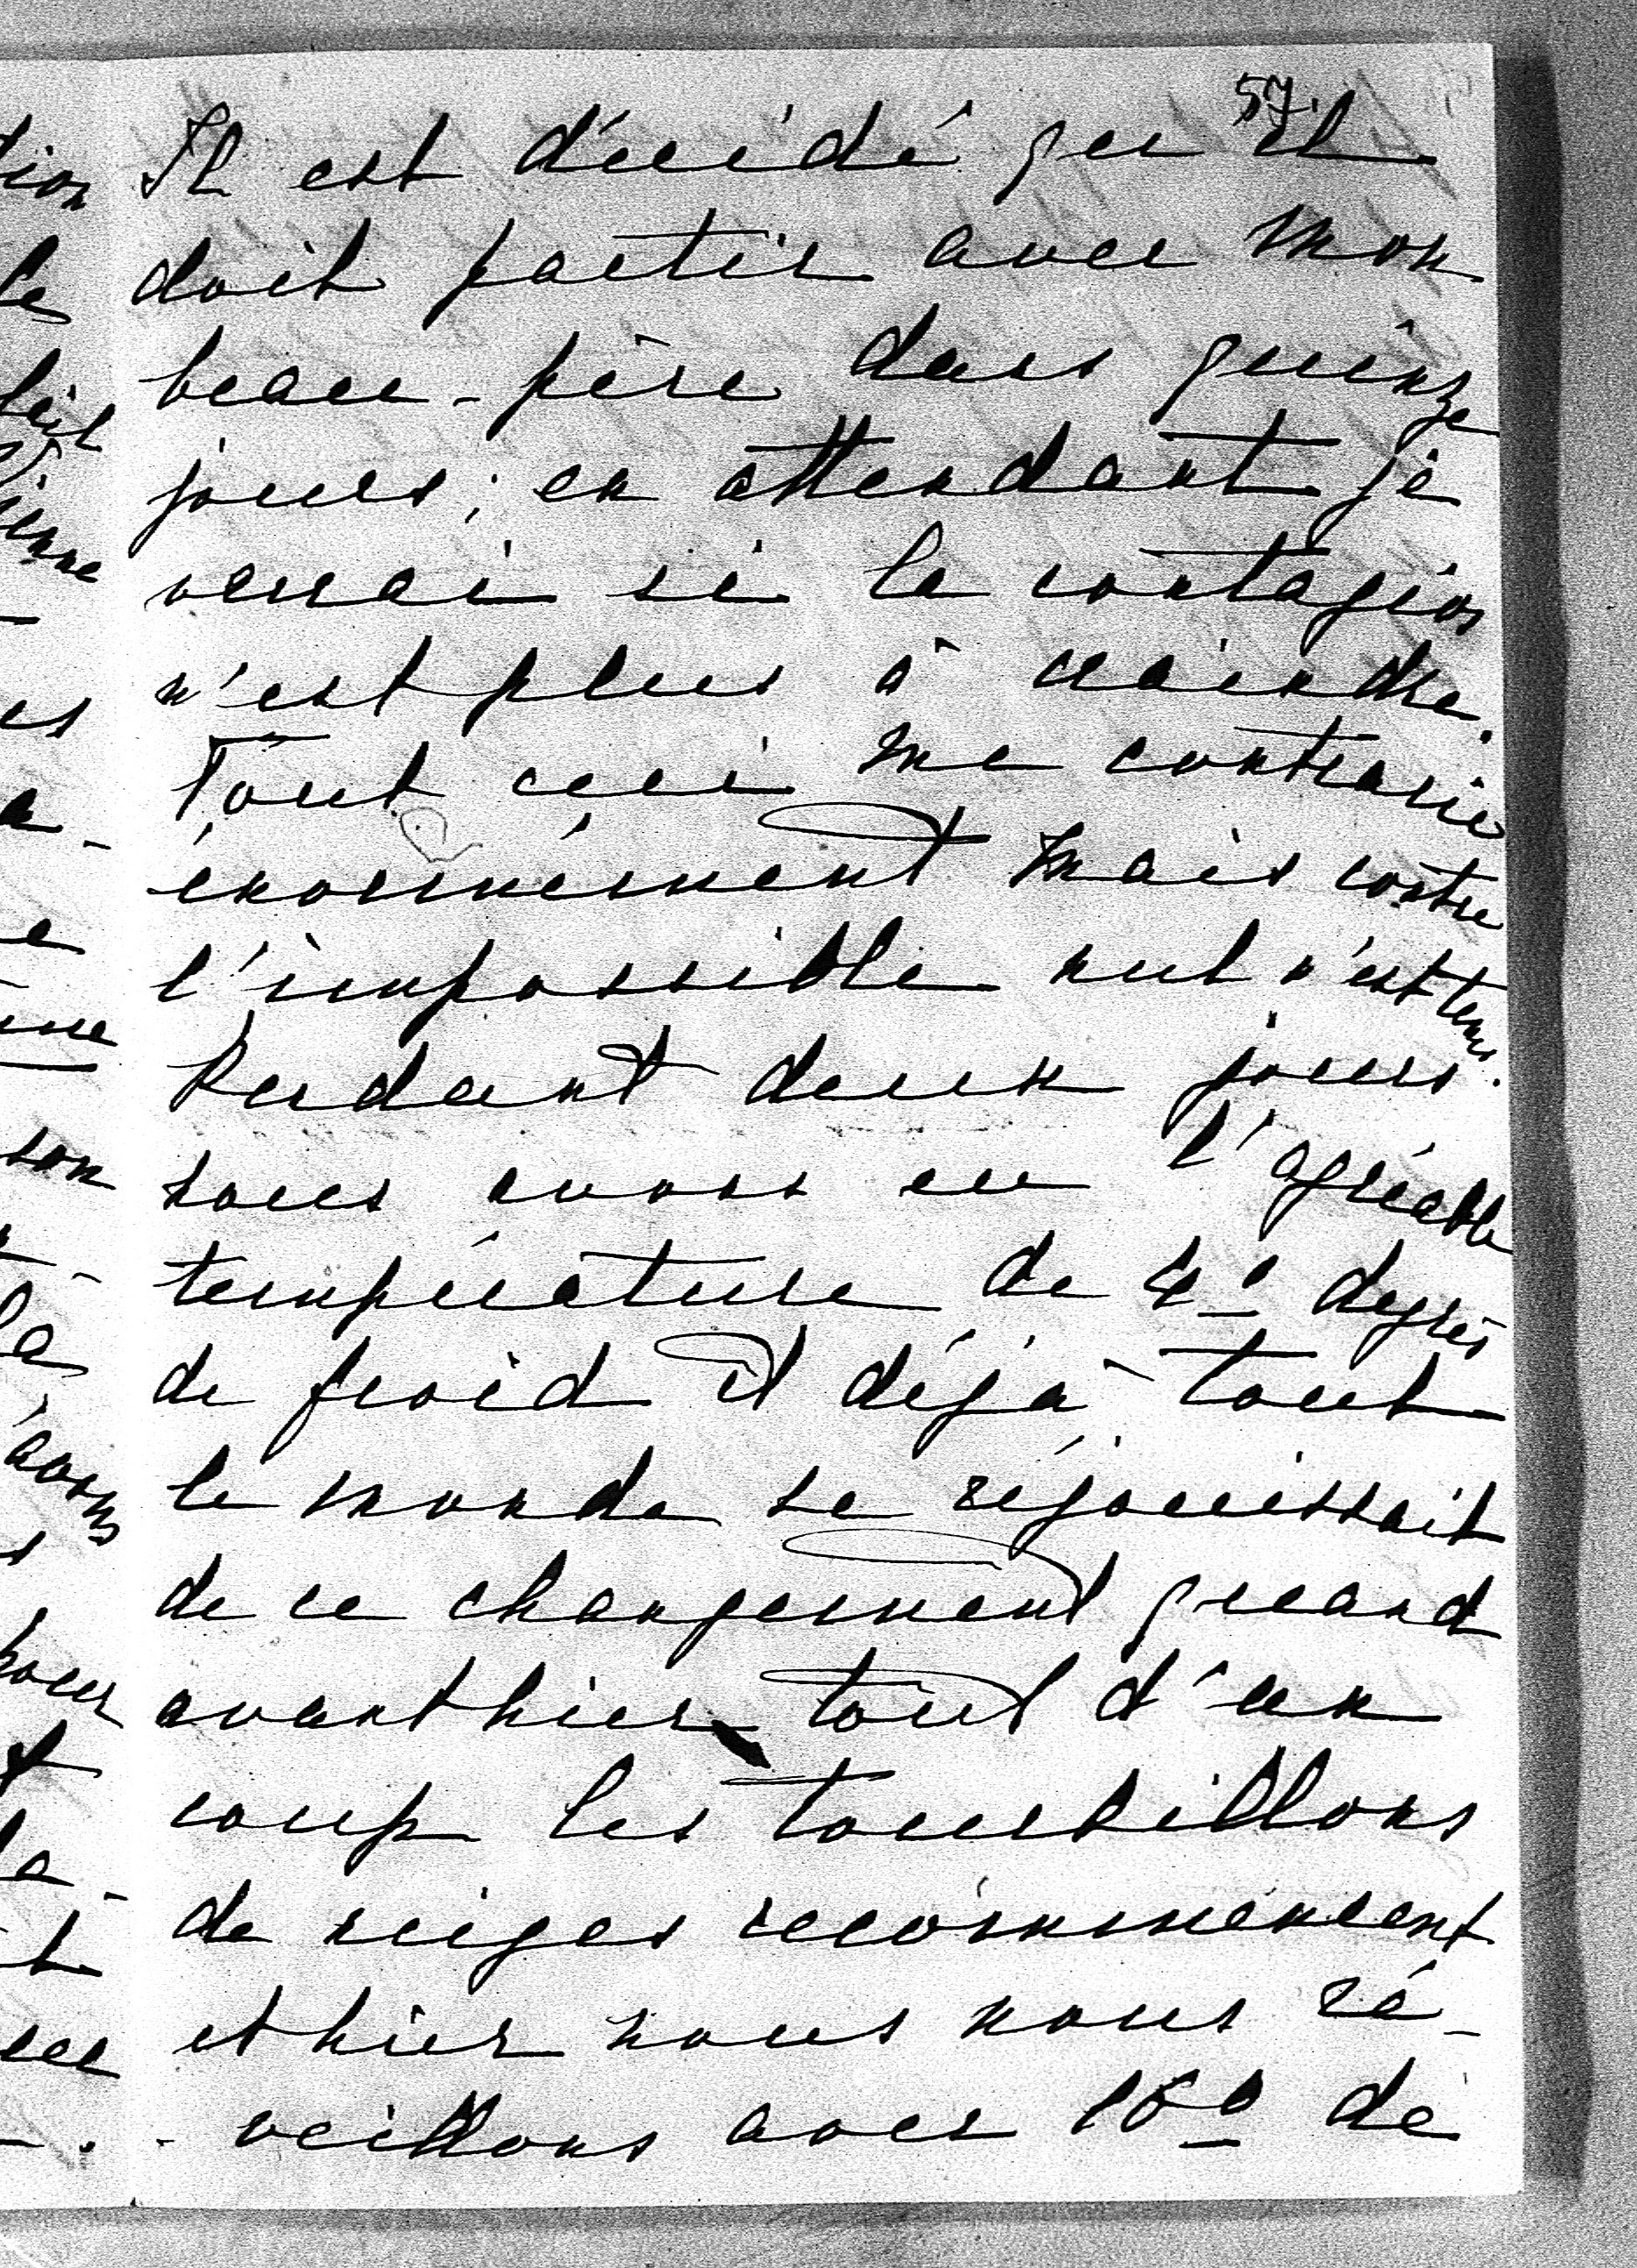 57.
Il est décidé qu'il
doit partir avec mon
beau-père dans quinze
jours; en attendant je
verrai si la contagion
n'est plus à craindre.
Tout ceci me contrarie
énormément mais contre
l'impossible nul n'est tenu.
Pendant deux jours
nous avons eu l'agréable
température de 4° degrés
de froid et déjà tout
le monde se réjouissait
de ce changement quand
avanthier tout d'un
coup les tourbillons
de neiges recommencent
et hier nous nous ré-
-veillons avec 16° de